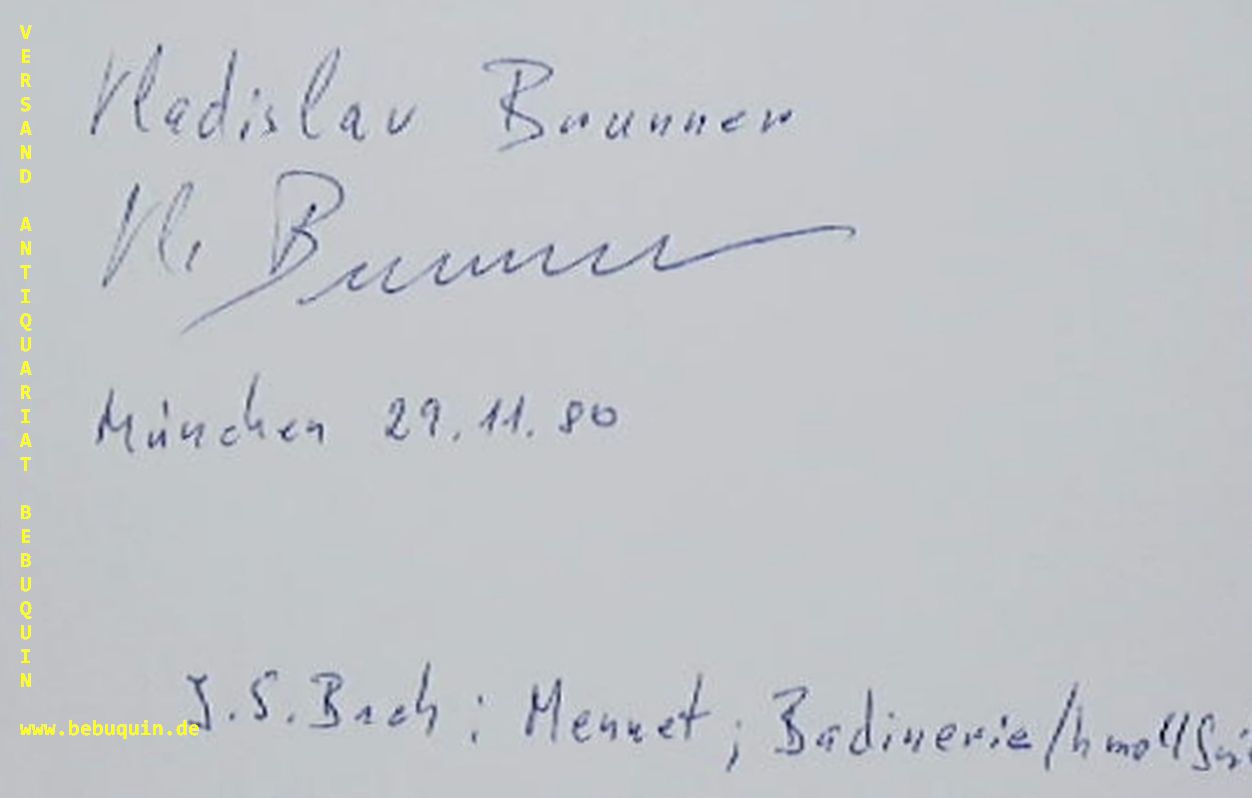 VERSAND ANTIQUARIAT BEBUQUIN
Vladislav Brunner
Vl. Brunner
München 29.11.80
J.S. Bach : Menuet ; Badinerie/h moll
www.bebuquin.de